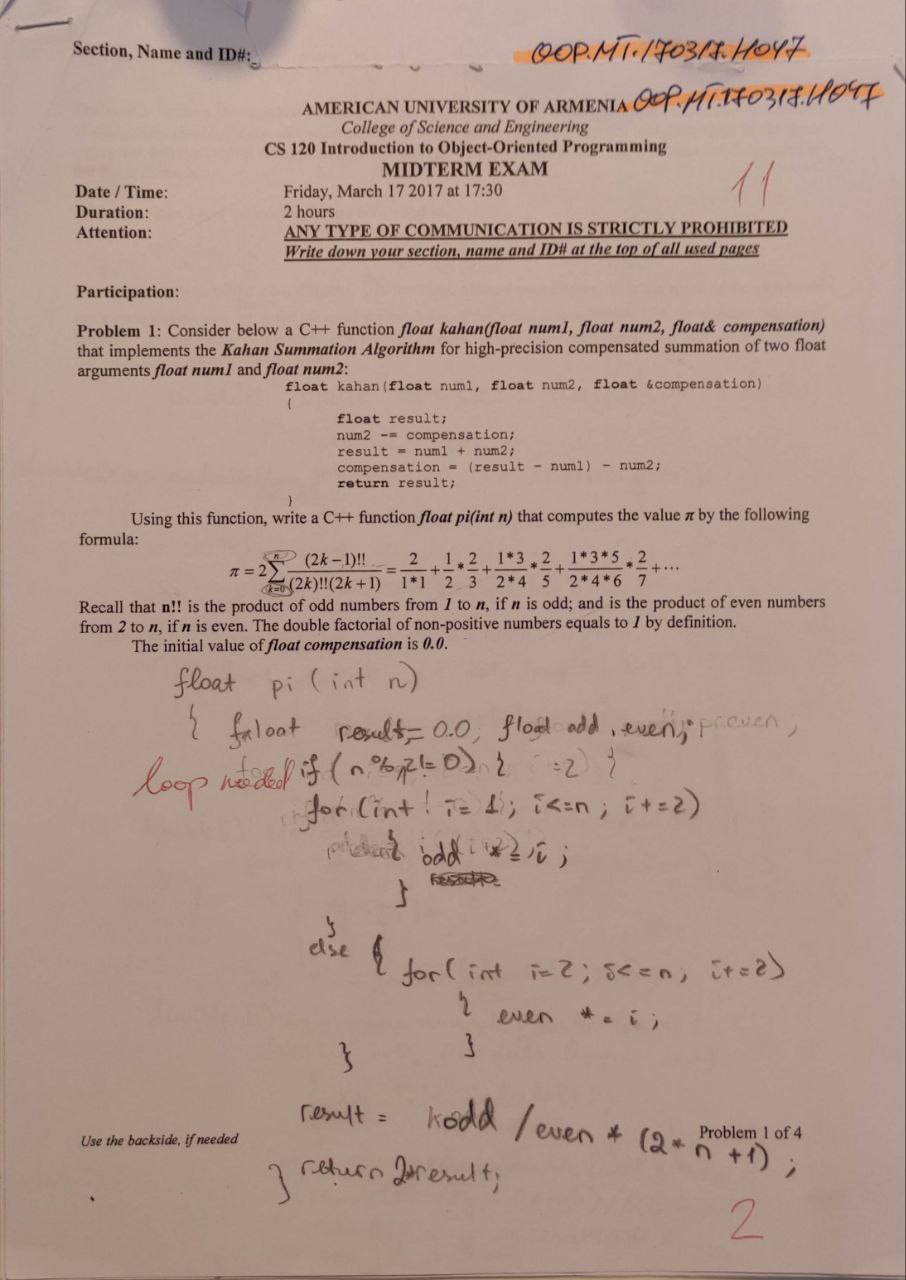 Section, Name and ID#: OOP.MT.170317.H047
OOP.MT.170317.H047
AMERICAN UNIVERSITY OF ARMENIA
College of Science and Engineering
CS 120 Introduction to Object-Oriented Programming
MIDTERM EXAM
11
Date / Time: Friday, March 17 2017 at 17:30
Duration: 2 hours
Attention: ANY TYPE OF COMMUNICATION IS STRICTLY PROHIBITED
Write down your section, name and ID# at the top of all used pages
Participation:
Problem 1: Consider below a C++ function float kahan(float num1, float num2, float& compensation)
that implements the Kahan Summation Algorithm for high-precision compensated summation of two float
arguments float num1 and float num2:
float kahan(float num1, float num2, float &compensation)
{
float result;
num2 -= compensation;
result = num1 + num2;
compensation = (result - num1) - num2;
return result;
}
Using this function, write a C++ function float pi(int n) that computes the value π by the following
formula:
π = 2 ∑ (k=0 to n) (2k−1)!! / (2k)!!(2k+1) = 2/1*1 + 1/2 * 2/3 + 1*3/2*4 * 2/5 + 1*3*5/2*4*6 * 2/7 + ⋯
Recall that n!! is the product of odd numbers from 1 to n, if n is odd; and is the product of even numbers
from 2 to n, if n is even. The double factorial of non-positive numbers equals to 1 by definition.
The initial value of float compensation is 0.0.
float pi (int n)
{ float result = 0.0; float odd, even;
loop needed if (n%2!=0) {
for(int i=1; i<=n; i+=2)
{ odd *= i;
}
}
else {
for( int i=2; i<=n; i+=2)
{ even *= i;
}
}
result = odd / even * (2* n +1) ;
Use the backside, if needed Problem 1 of 4
} return 2*result;
2